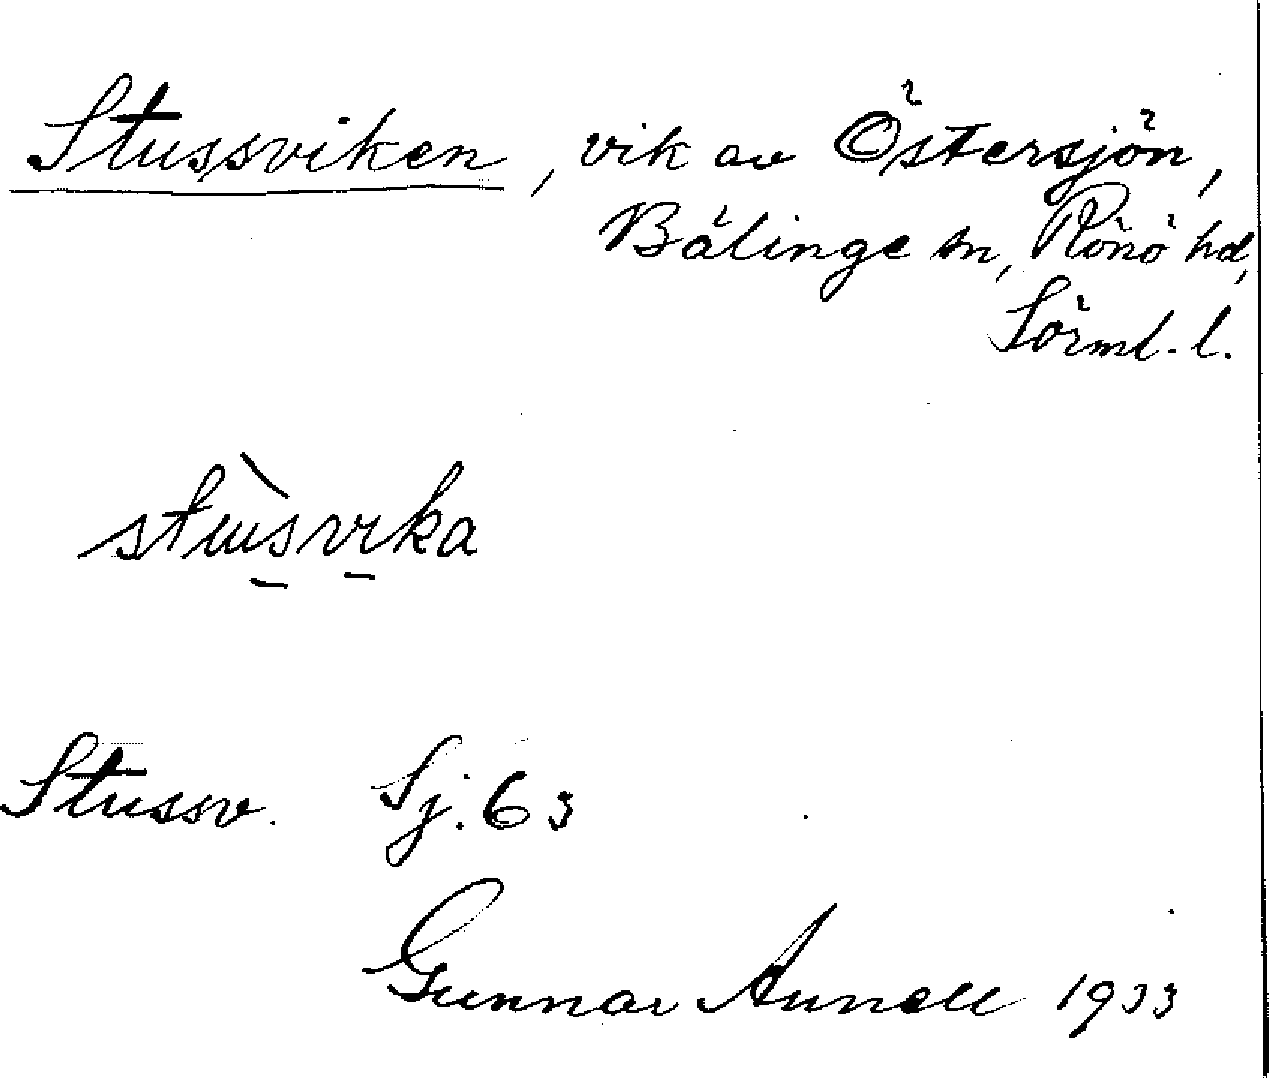 Stussviken, vik av Östersjön,
Bälinge sn, Rönö hd,
Sörml. l.
stusvika
Stussv. Sj. 63
Gunnar Aunell 1933